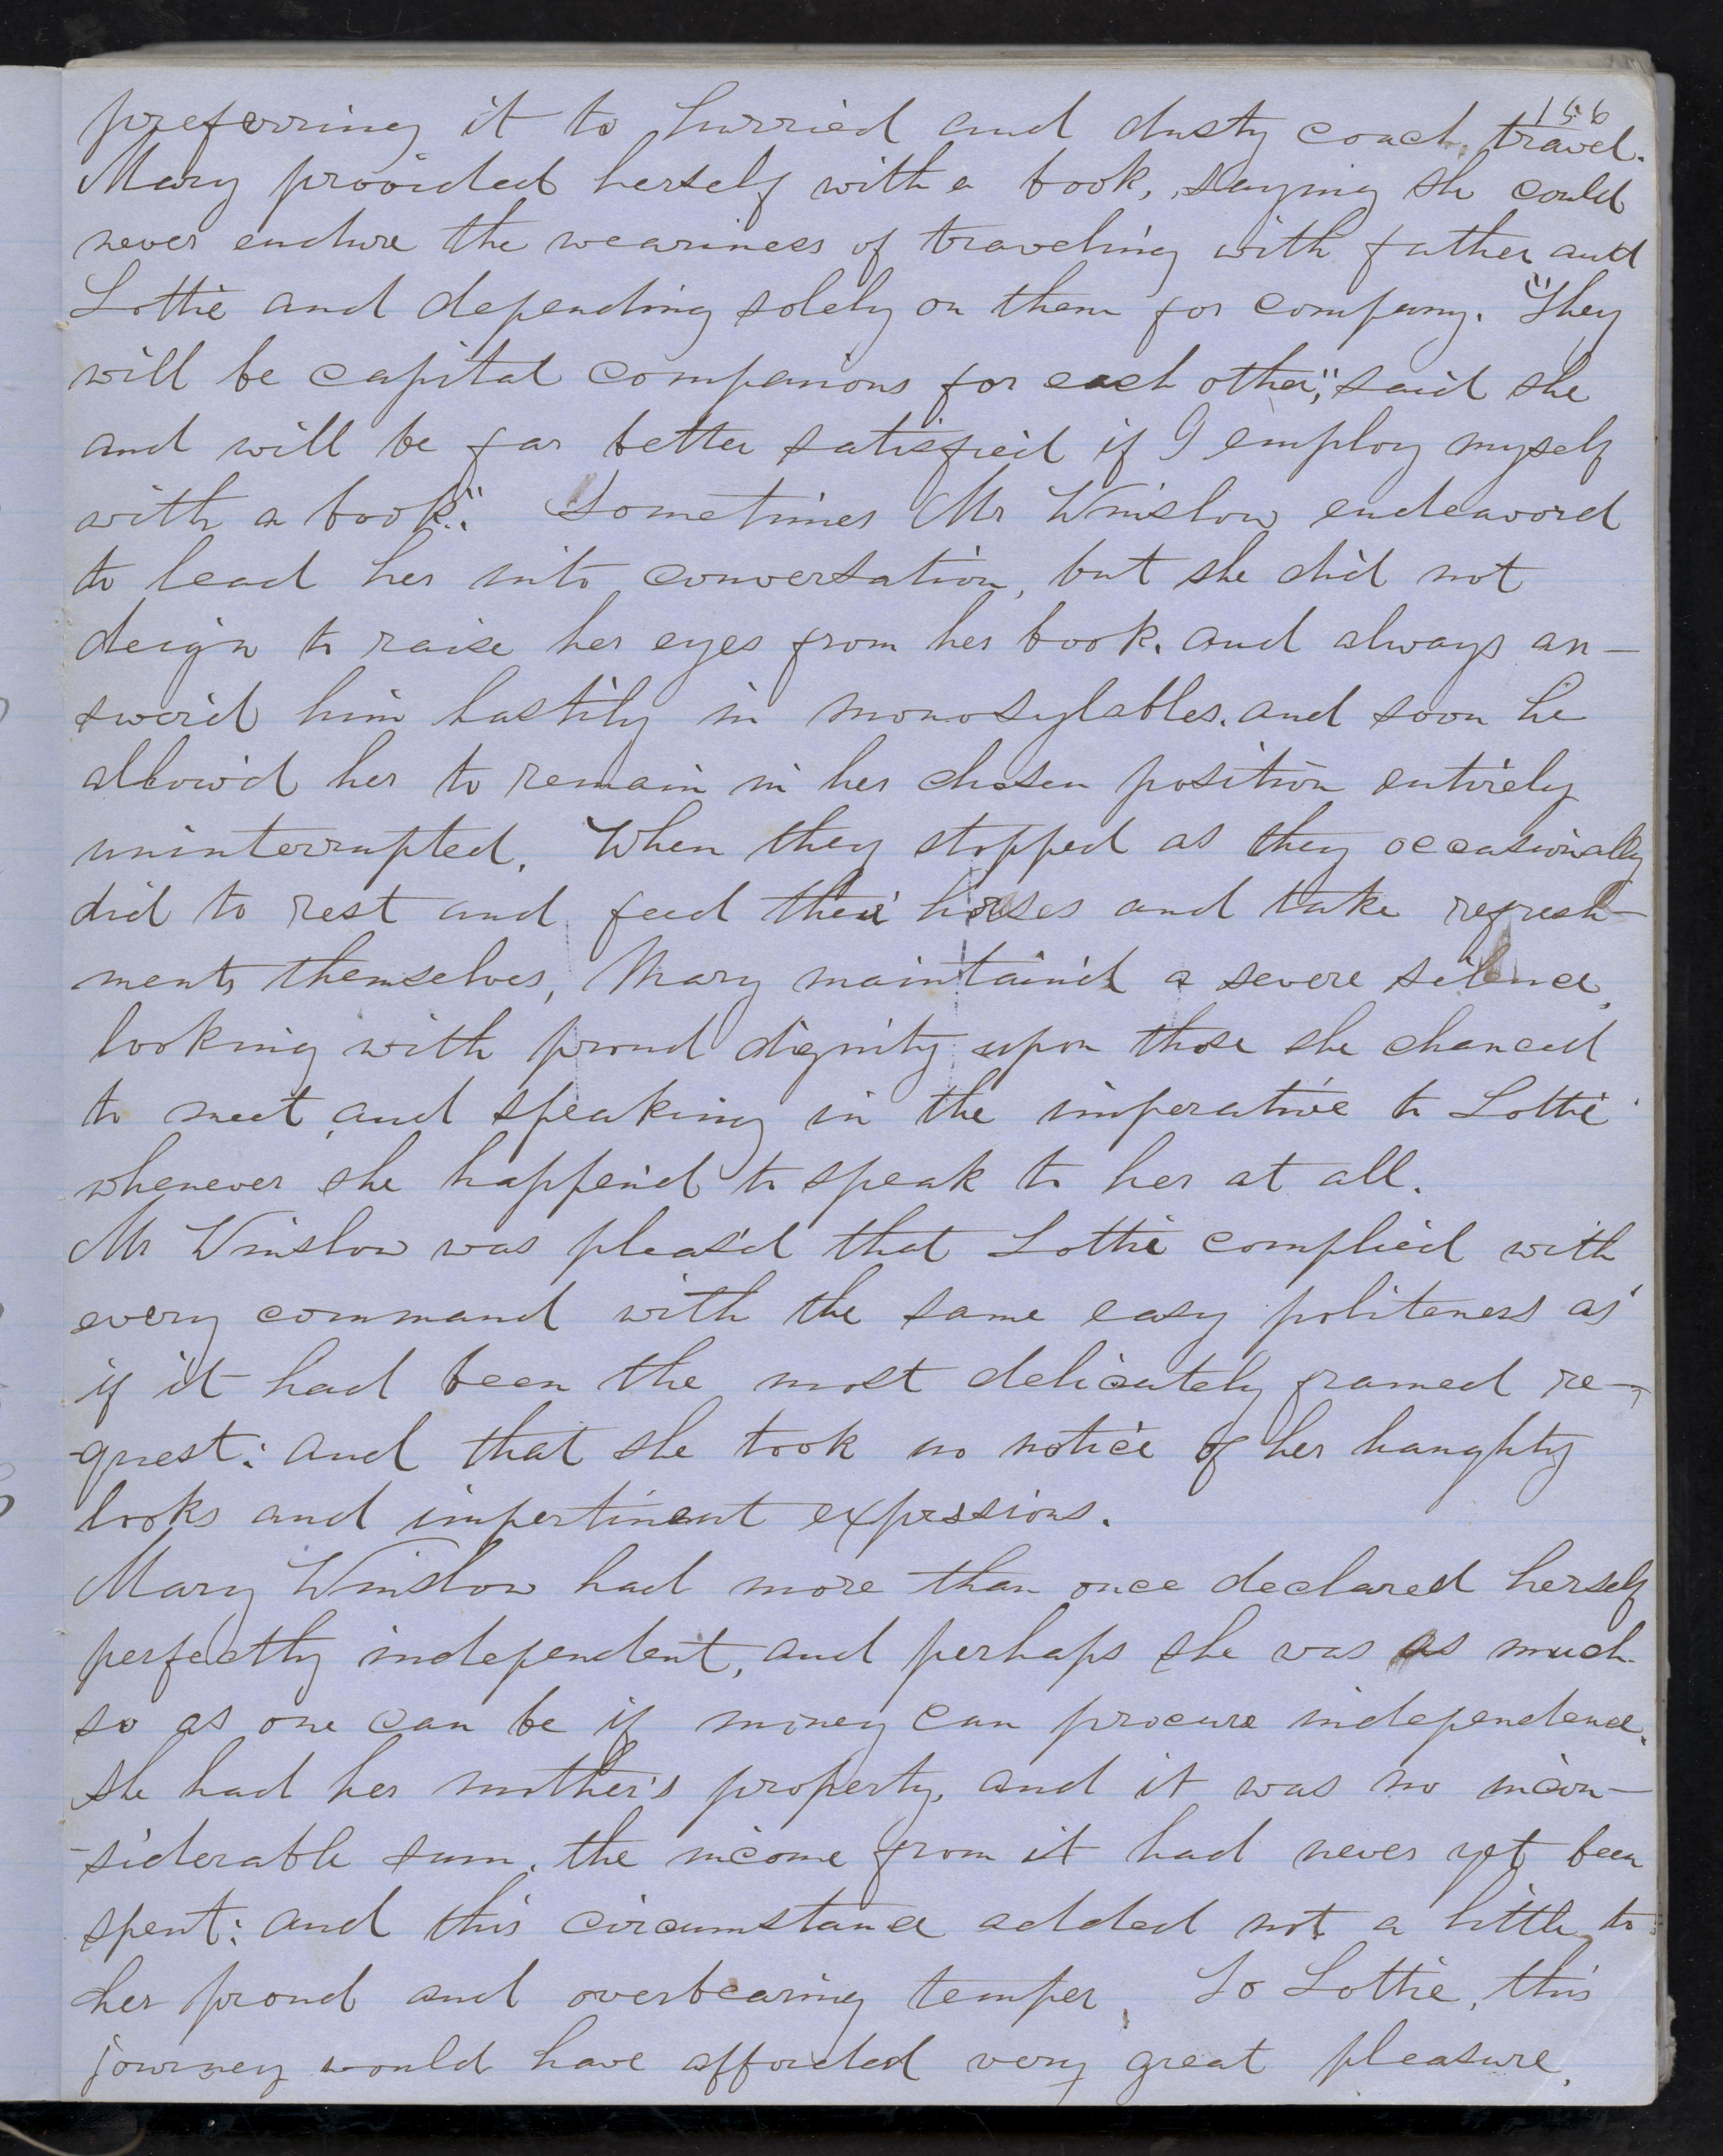 156
preferring it to hurried and dusty coach travel.
Mary provided herself with a book, saying she could
never endure the weariness of traveling with father and
Lottie and depending solely on them for company. "They
will be capital companions for each other," said she
and will be far better satisfied if I employ myself
with a book." Sometimes Mr Winslow endeavord
to lead her into conversation, but she did not
deign to raise her eyes from her book. and always an-
swer'd him hastily in monosylables. and soon he
allow'd her to remain in her chosen position entirely
uninterrupted. When they stopped as they occasionally
did to rest and feed their horses and take refresh-
ments themselves, Mary maintain'd a severe silence,
looking with proud dignity upon those she chanced
to meet and speaking in the imperative to Lottie
whenever she happen'd to speak to her at all.
Mr Winslow was pleas'd that Lottie complied with
every command with the same easy politeness as
if it had been the most delicately framed re-
quest: and that she took no notice of her haughty
looks and impertinent expressions.
Mary Winslow had more than once declared herself
perfectly independent, and perhaps she was as much
so as one can be if money can procure independence.
She had her mother's property, and it was no incon-
-siderable sum. the income from it had never yet been
spent: and this circumstance added not a little to
her proud and overbearing temper. To Lottie, this
journey would have afforded very great pleasure,